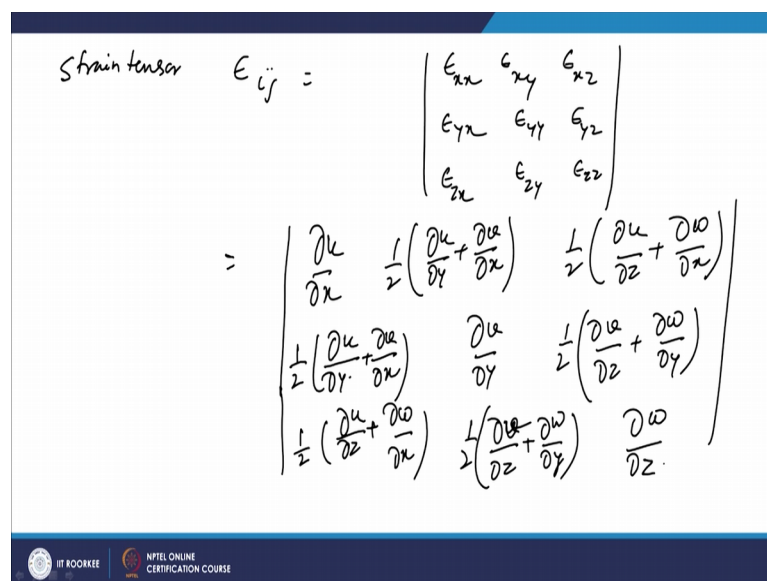 Strain tensor ϵij = | ϵxx ϵxy ϵxz |
| ϵyx ϵyy ϵyz |
| ϵzx ϵzy ϵzz |
= | ∂u/∂x 1/2(∂u/∂y + ∂v/∂x) 1/2(∂u/∂z + ∂w/∂x) |
| 1/2(∂u/∂y + ∂v/∂x) ∂v/∂y 1/2(∂v/∂z + ∂w/∂y) |
| 1/2(∂u/∂z + ∂w/∂x) 1/2(∂v/∂z + ∂w/∂y) ∂w/∂z. |
IIT ROORKEE
NPTEL ONLINE
CERTIFICATION COURSE